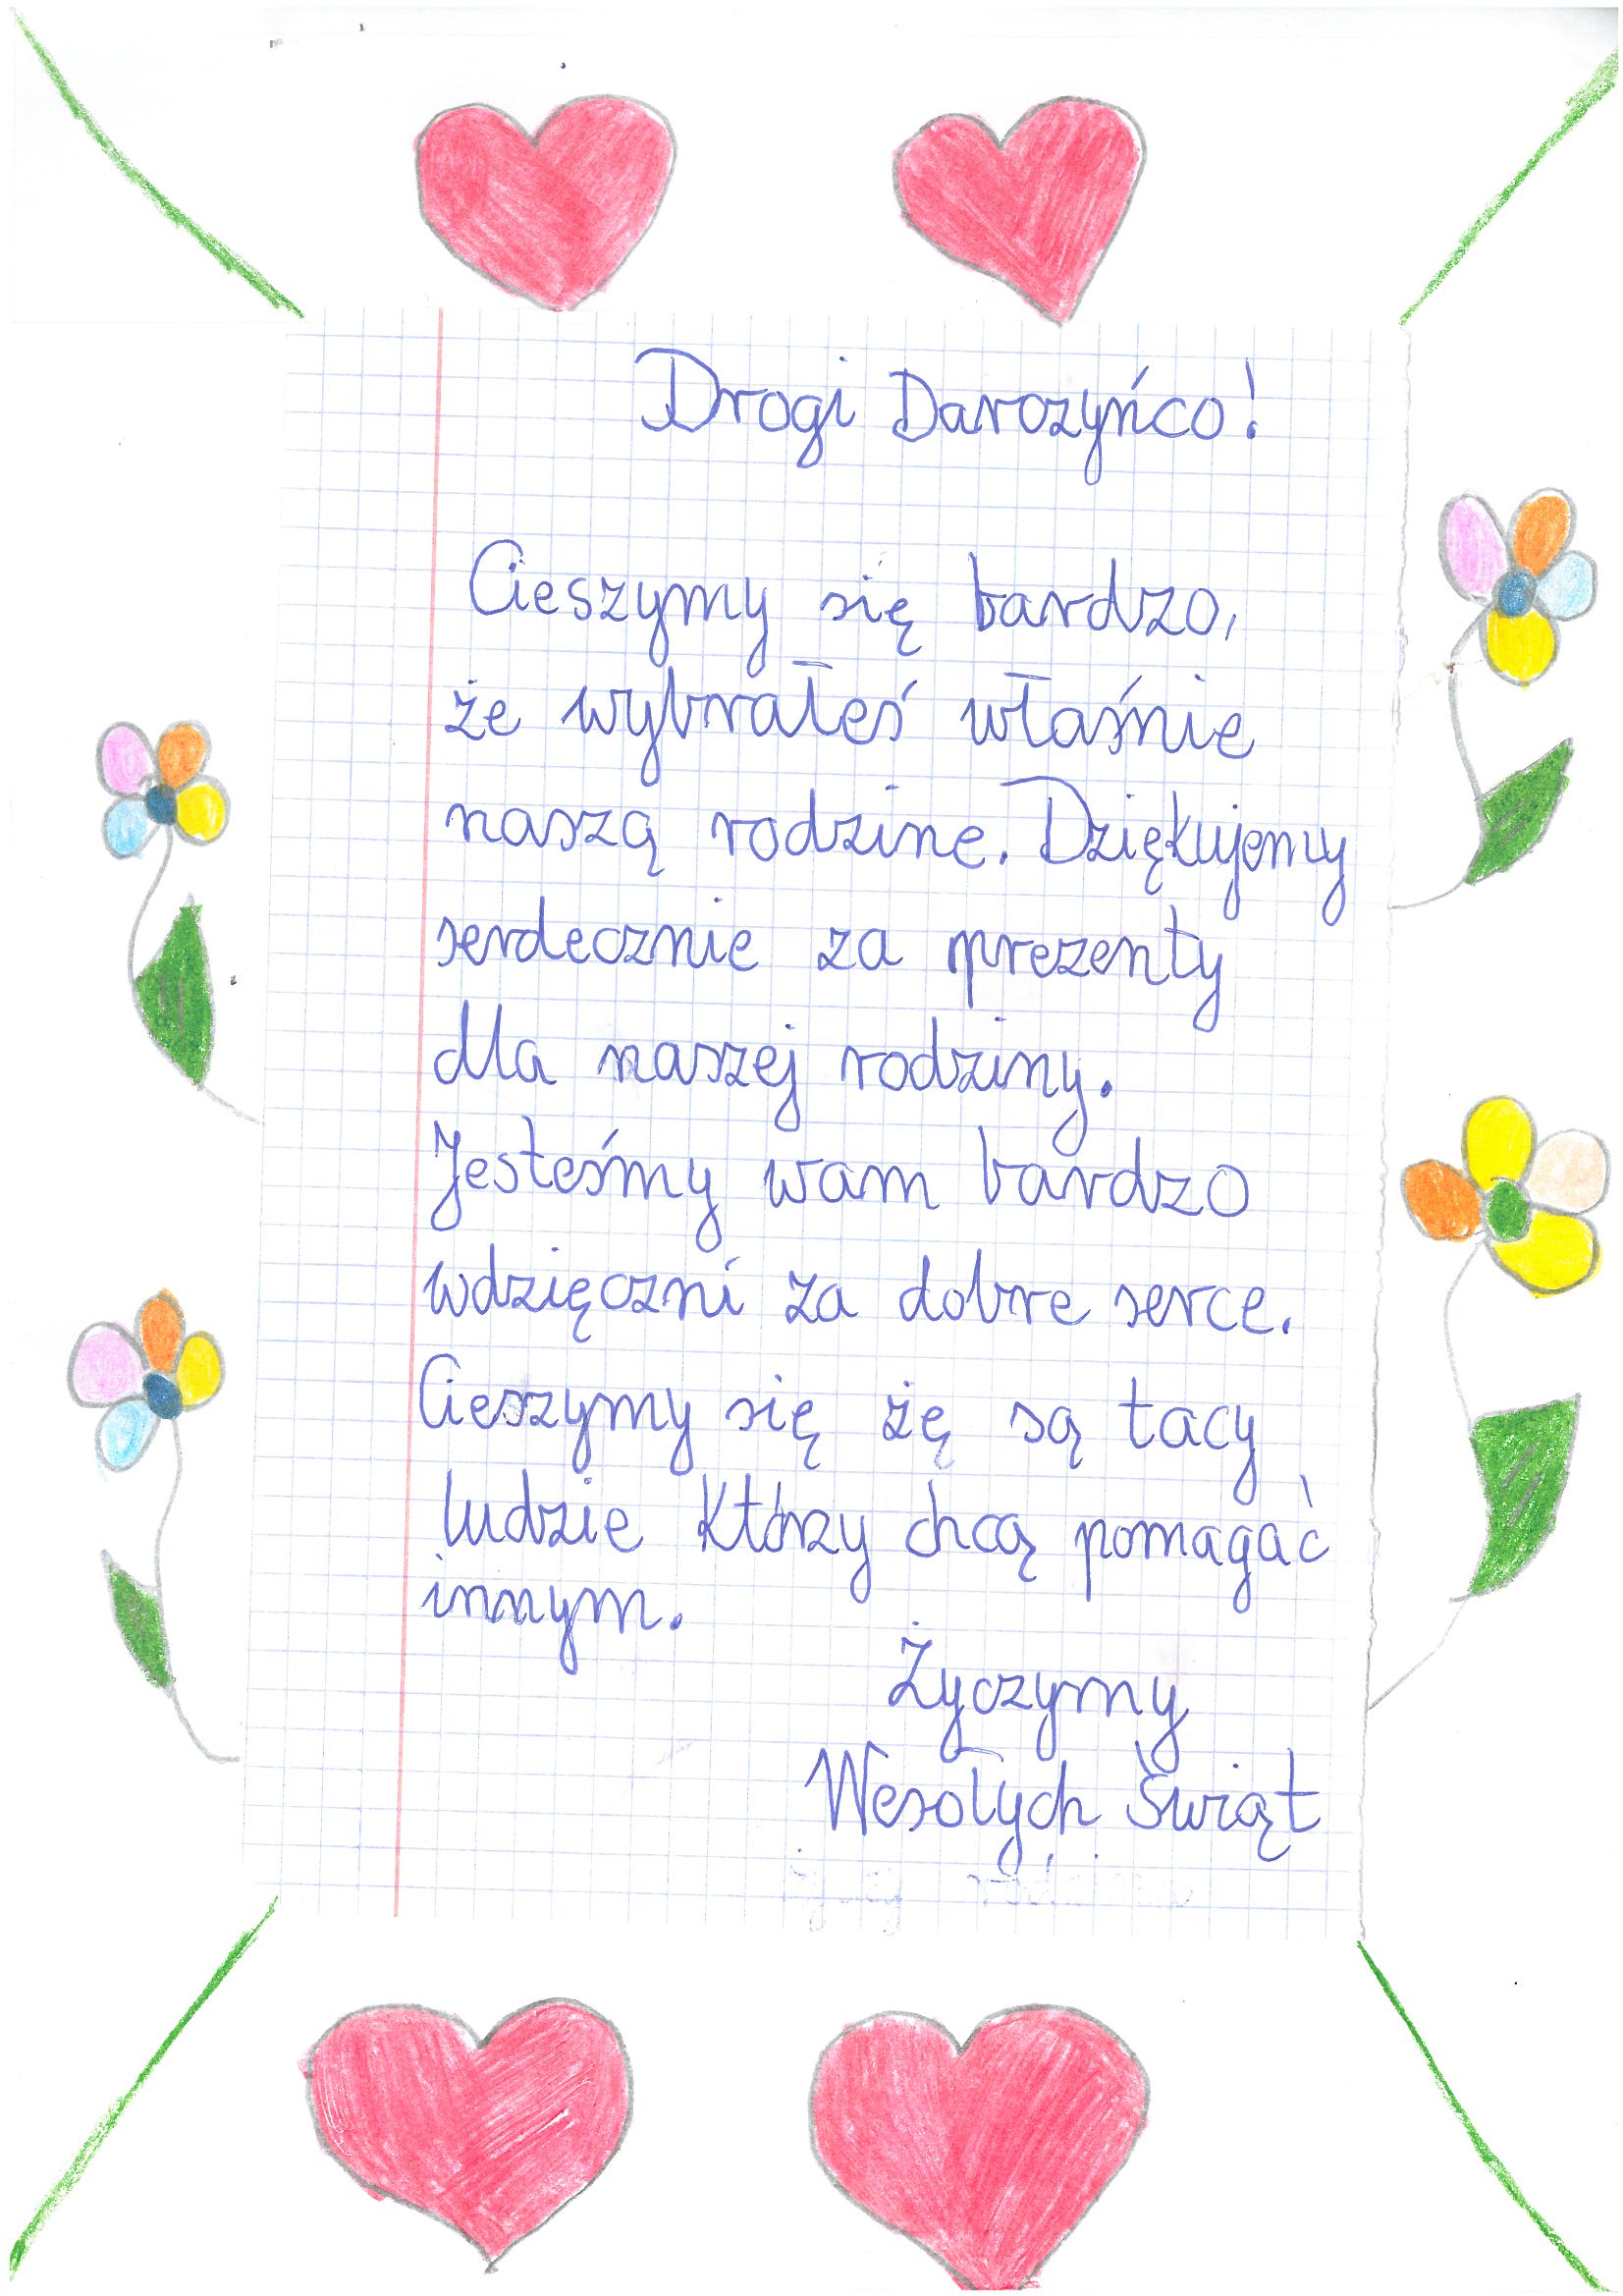 Drogi Darozyńco!
Cieszymy się bardzo,
że wybrałeś właśnie
naszą rodzine. Dziękujemy
serdecznie za prezenty
dla naszej rodziny.
Jesteśmy wam bardzo
wdzięczni za dobre serce.
Cieszymy się żę są tacy
ludzie którzy chcą pomagać
innym.
Życzymy
Wesołych Świąt